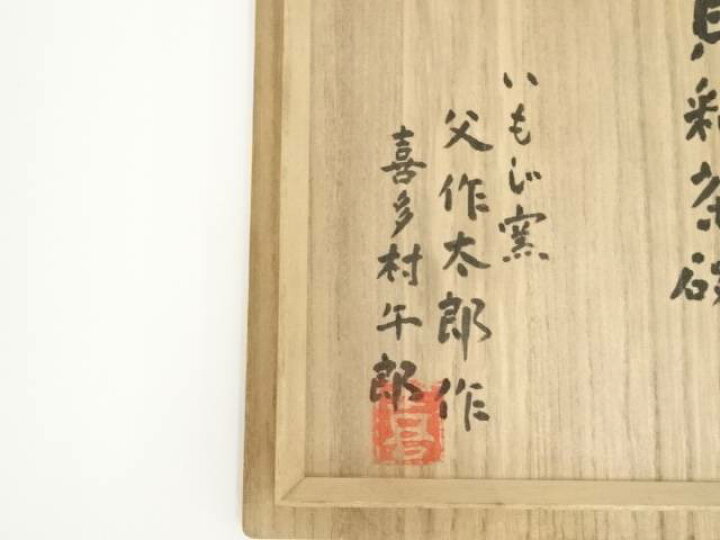 釉茶碗
いもじ窯
父作太郎作
喜多村午郎